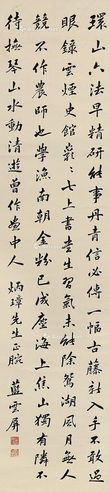 環山六法早精研能事丹青信必傳一幅古藤入手不教過
眼錄雲煙史館巖〻七上書書生習氣未能除鴛湖風月無人
競不作農師也學漁南朝金粉已成塵海上焦山獨有隣不
待撫琴山水動清遊曾作畫中人 炳璋先生正腕 藍雲屏